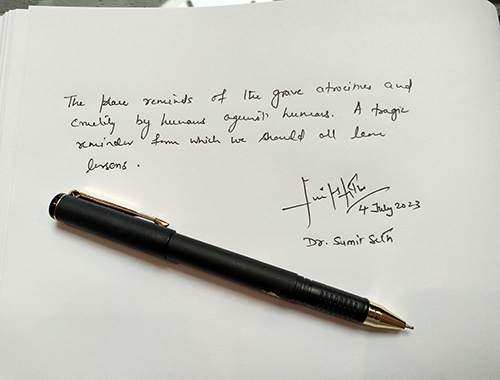 The place reminds of the grave atrocities and
cruelty by humans against humans. A tragic
reminder from which we should all learn
lessons.
4 July 2023
Dr. Sumit Seth